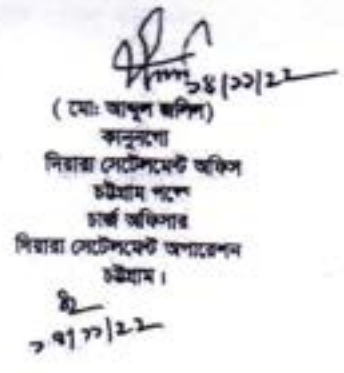 ১৪/১১/২২
( মো: আব্দুল জলিল)
কানুনগো
দিয়ারা সেটেলমেন্ট অফিস
চট্টগ্রাম পক্ষে
চার্জ অফিসার
দিয়ারা সেটেলমেন্ট অপারেশন
চট্টগ্রাম।
১৭/১১/২২